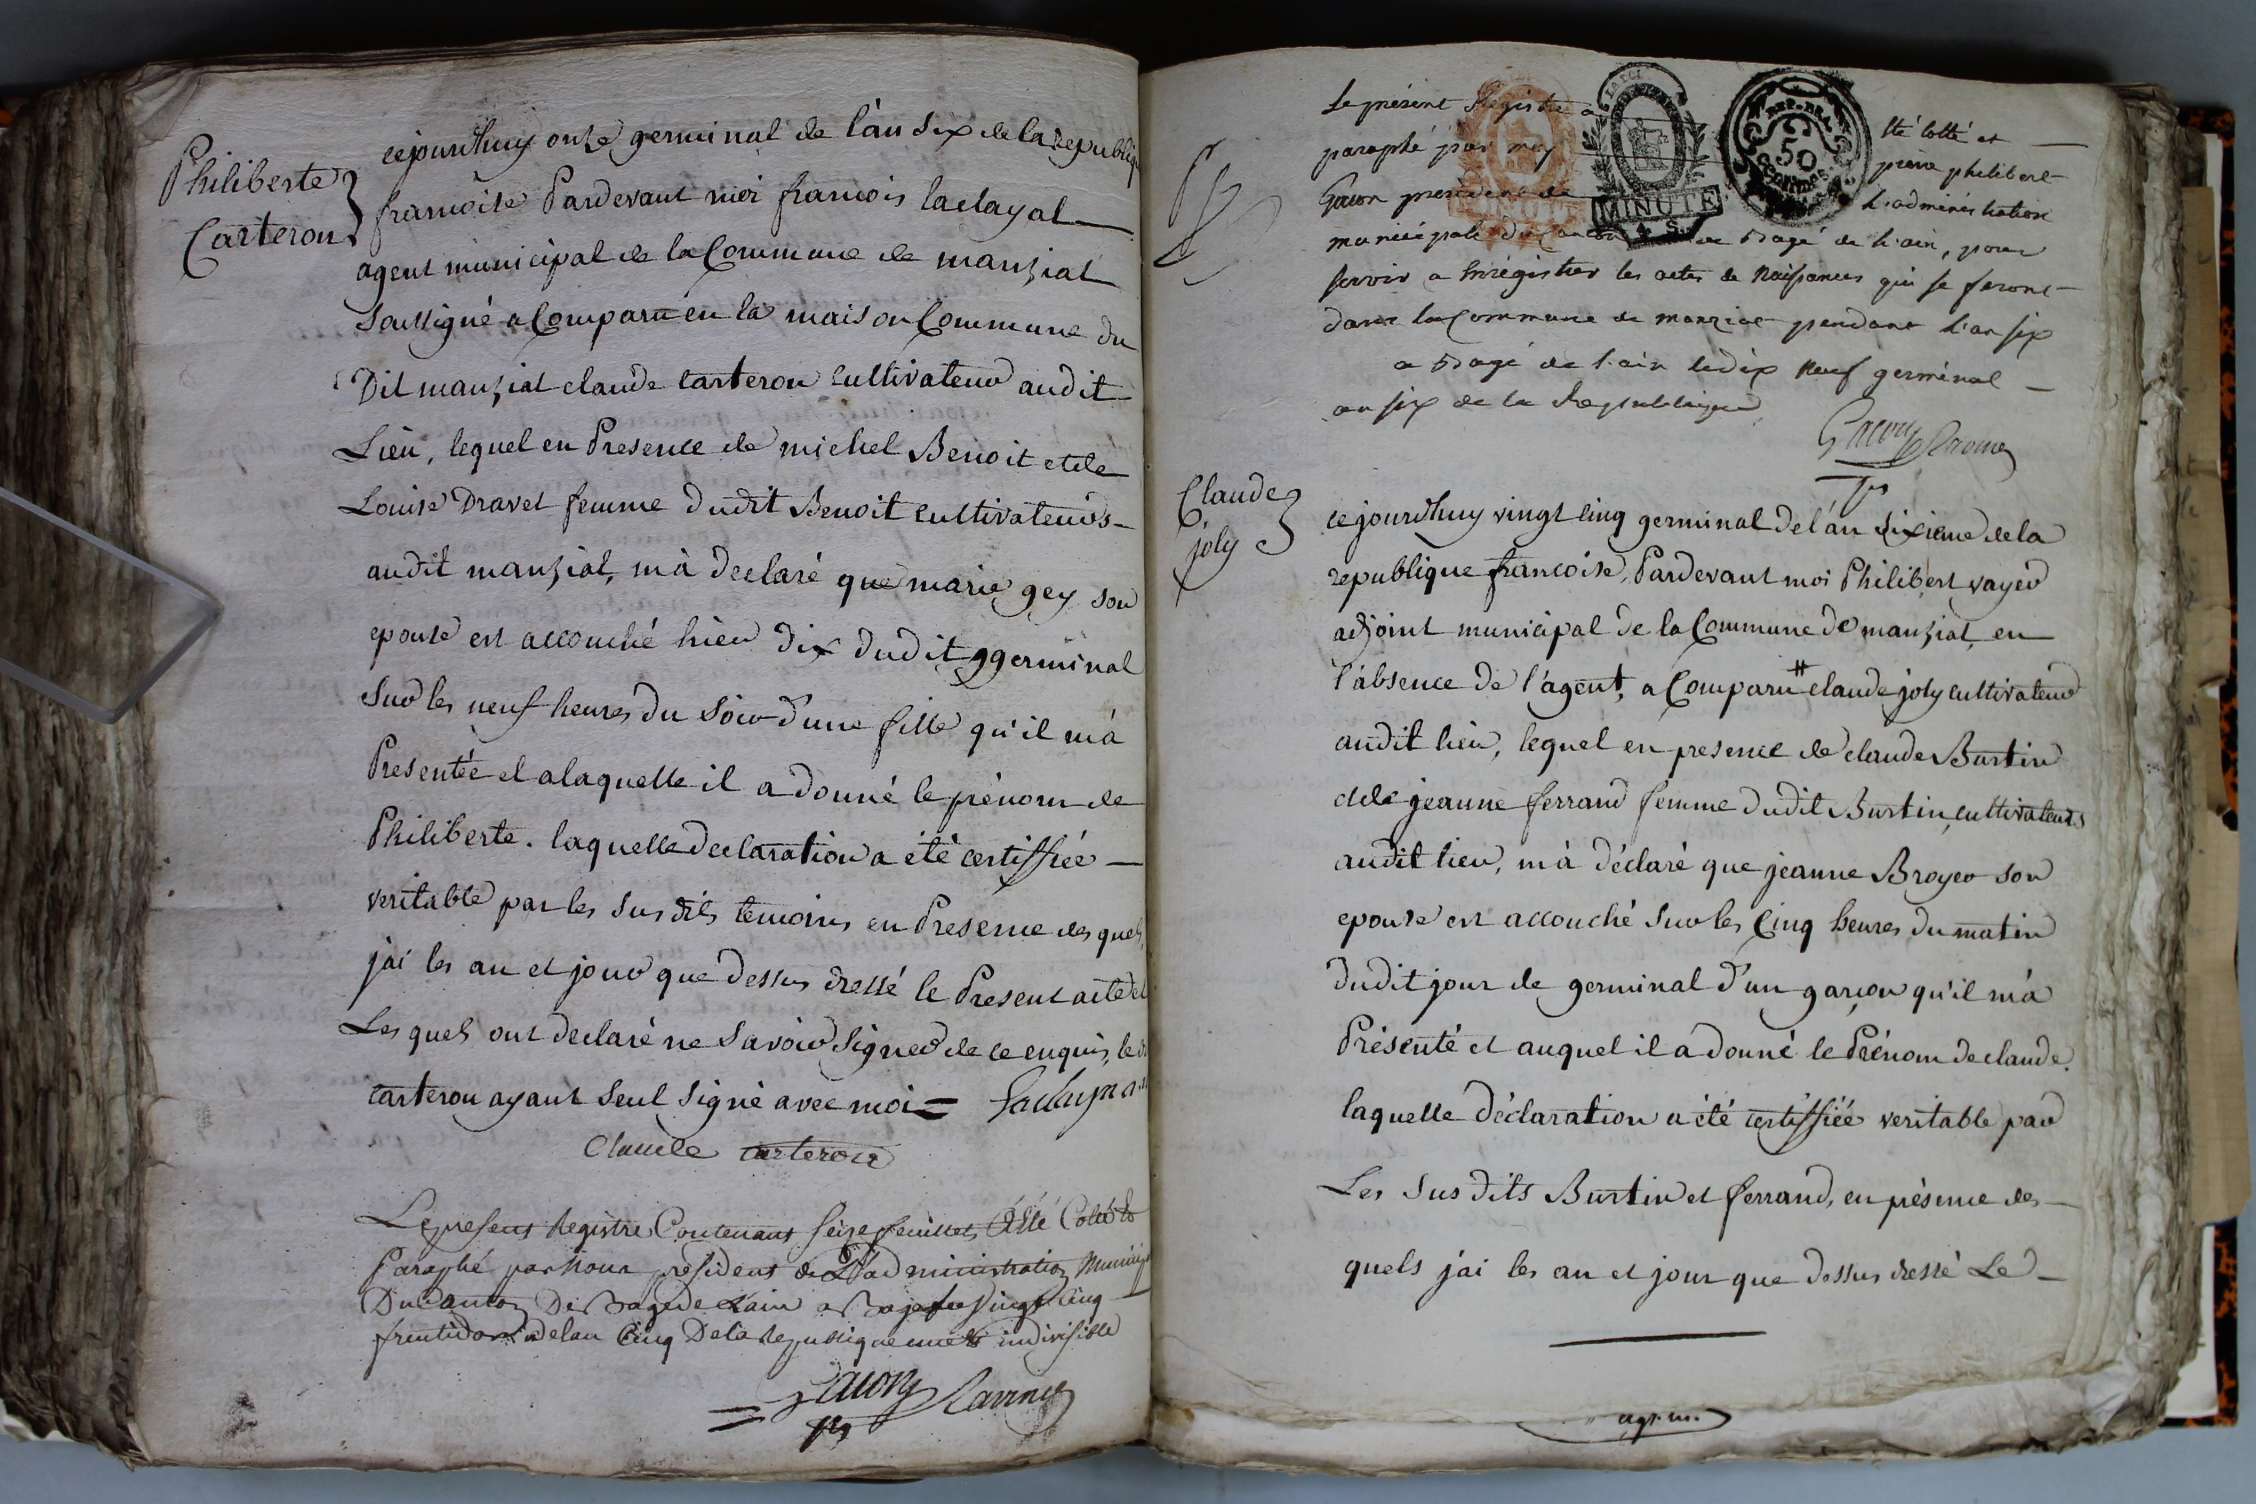 Philiberte
Carteron
cejourdhuy onze germinal de l'an six de la republiq
francoise Pardevant moi francois laclayal
agent municipal de la Commune de manziat
soussigné a Comparu en la maison Commune du
Dit manziat claude carteron cultivateur audit
Lieu, lequel en Presence de michel Benoit et de
Louise Dravet femme dudit Benoit cultivateurs
audit manziat, m'a declaré que marie gey son
epouse est accouché hier dix dudit germinal
sur les neuf heures du soir d'une fille qu'il m'a
Presentée et a laquelle il a donné le prénom de
Philiberte. laquelle declaration a été certiffiée
veritable par les sus dits temoins en Presence des quels
j'ai les an et jour que dessus dressé le Present acte et
Les quels ont declaré ne savoir signer de ce enquis, le dt
carteron ayant seul signé avec moi =
Claude carteron
Le present Registre Contenant seize feuillets a Eté Coté et
Paraphé par Nous président de L'administration Municip
Du Canton De Bagé de Lain a Bagé le Vingt Cinq
fructidor delan Cinq De la Republique une et indivisible
Gacon
Le présent Régistre a été cotté et
paraphé par moy pierre philibert
Gacon président de L'administration
municipale du Canton de Bagé de l'ain, pour
servir a Enrégistrer les actes de Naissances qui se feront
dans la Commune de manziat pendant l'an six
a Bagé de l'ain le dix Neuf germinal
an six de la Republique
Gacon
MINUTE
4 S.
REP. FRA.
50
CENTIMES
Claude
joly
cejourdhuy vingt cinq germinal de l'an sixieme de la
republique francoise, Pardevant moi Philibert vayer
adjoint municipal de la Commune de manziat, en
l'absence de l'agent, a Comparu # claude joly cultivateur
audit lieu, lequel en presence de claude Burtin
et de jeanne ferrand femme dudit Burtin, cultivateurs
audit lieu, m'a déclaré que jeanne Broyer son
epouse est accouché sur les Cinq heures du matin
dudit jour de germinal d'un garçon qu'il m'a
Présenté et auquel il a donné le Prénom de claude.
laquelle déclaration a été certiffiée veritable par
Les sus dits Burtin et ferrand, en présence des
quels j'ai les an et jour que dessus dressé Le
agt. m.